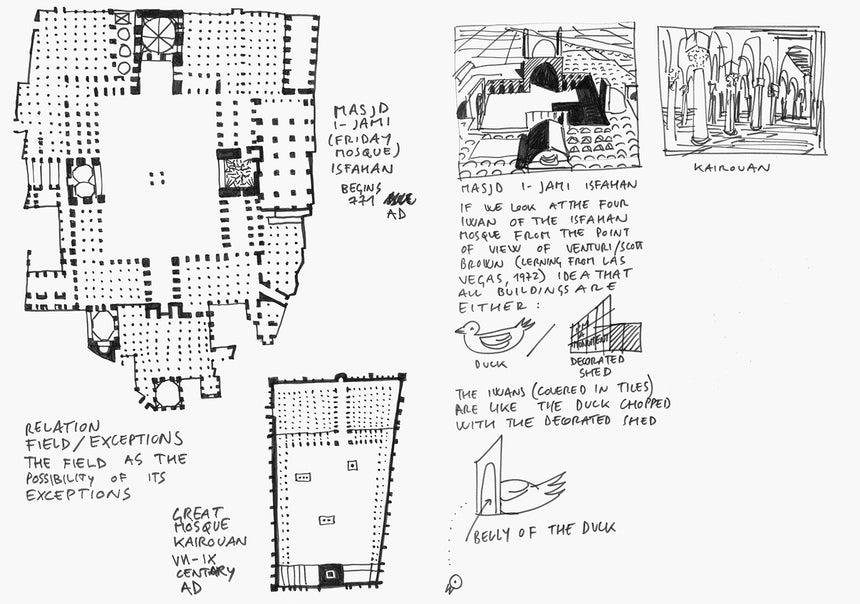 MASJD
I-JAMI
(FRIDAY
MOSQUE)
ISFAHAN
BEGINS
771
AD
RELATION
FIELD/EXCEPTIONS
THE FIELD AS THE
POSSIBILITY OF ITS
EXCEPTIONS
GREAT
MOSQUE
KAIROUAN
VII-IX
CENTARY
AD
MASJD I-JAMI ISFAHAN
KAIROUAN
IF WE LOOK AT THE FOUR
IWAN OF THE ISFAHAN
MOSQUE FROM THE POINT
OF VIEW OF VENTURI/SCOTT
BROWN (LERNING FROM LAS
VEGAS, 1972) IDEA THAT
ALL BUILDINGS ARE
EITHER:
DUCK
/
MONUMENT
DECORATED
SHED
THE IWANS (COVERED IN TILES)
ARE LIKE THE DUCK CHOPPED
WITH THE DECORATED SHED
BELLY OF THE DUCK